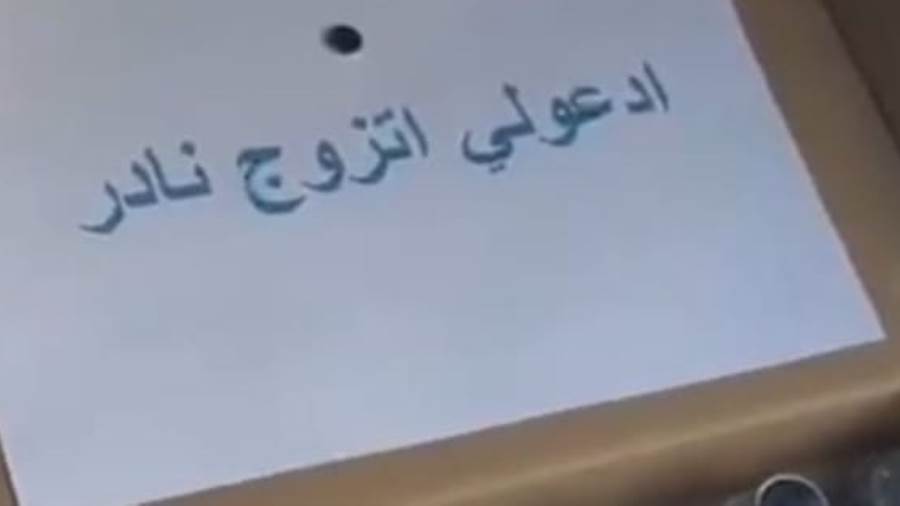 ادعولي اتزوج نادر